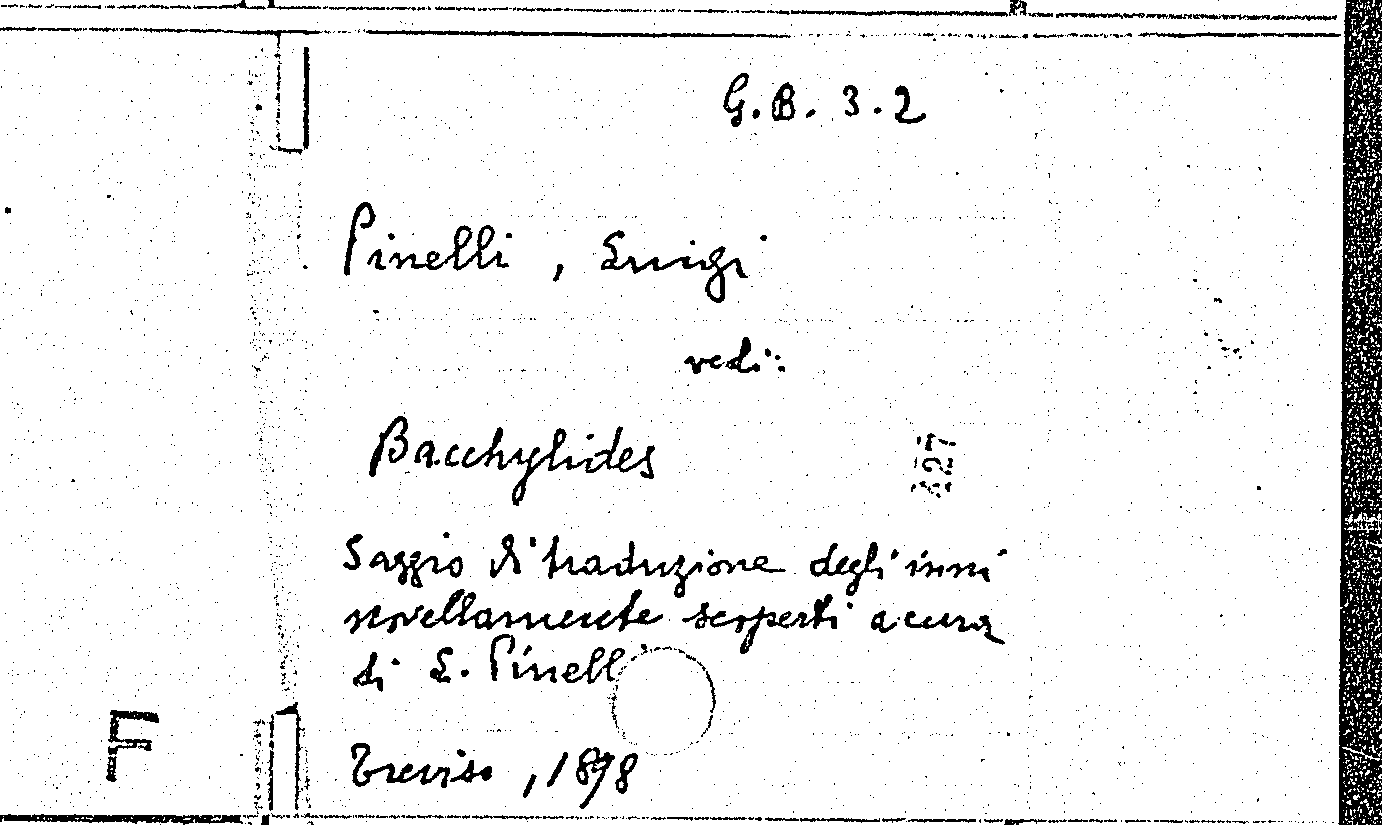 G.B. 3.2
Pinelli, Luigi
vedi:
Bacchylides
Saggio di traduzione degli inni
novellamente scoperti a cura
di L. Pinelli
Treviso, 1898
F